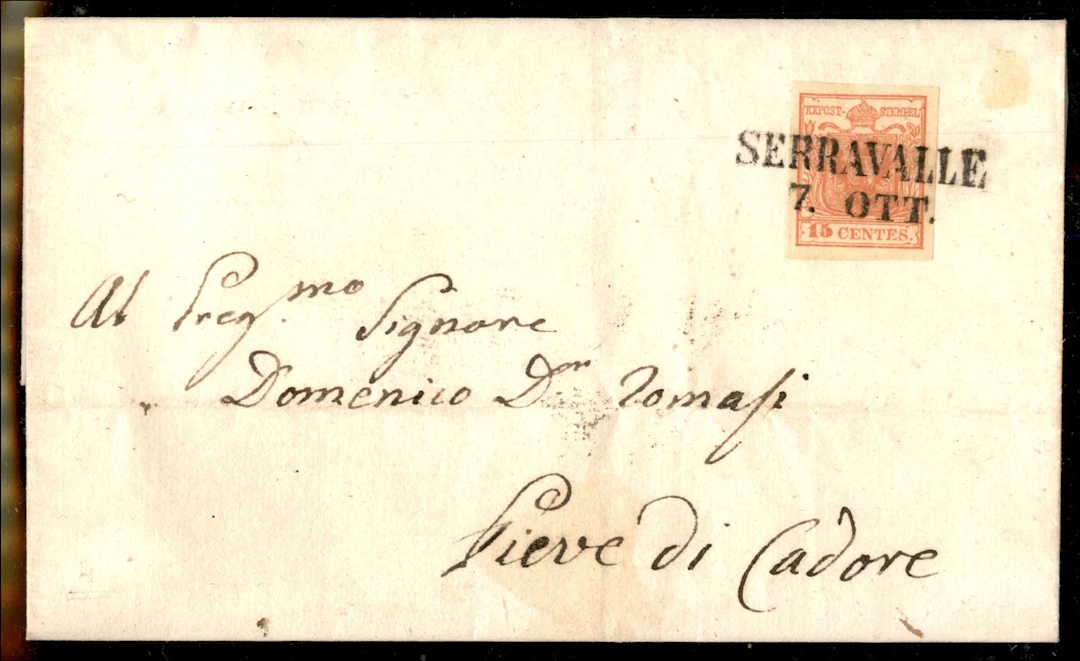 KKPOST-STEMPEL
SERRAVALLE
7. OTT.
15 CENTES.
Al Preg.mo Signore
Domenico Dor Tomasi
Pieve di Cadore